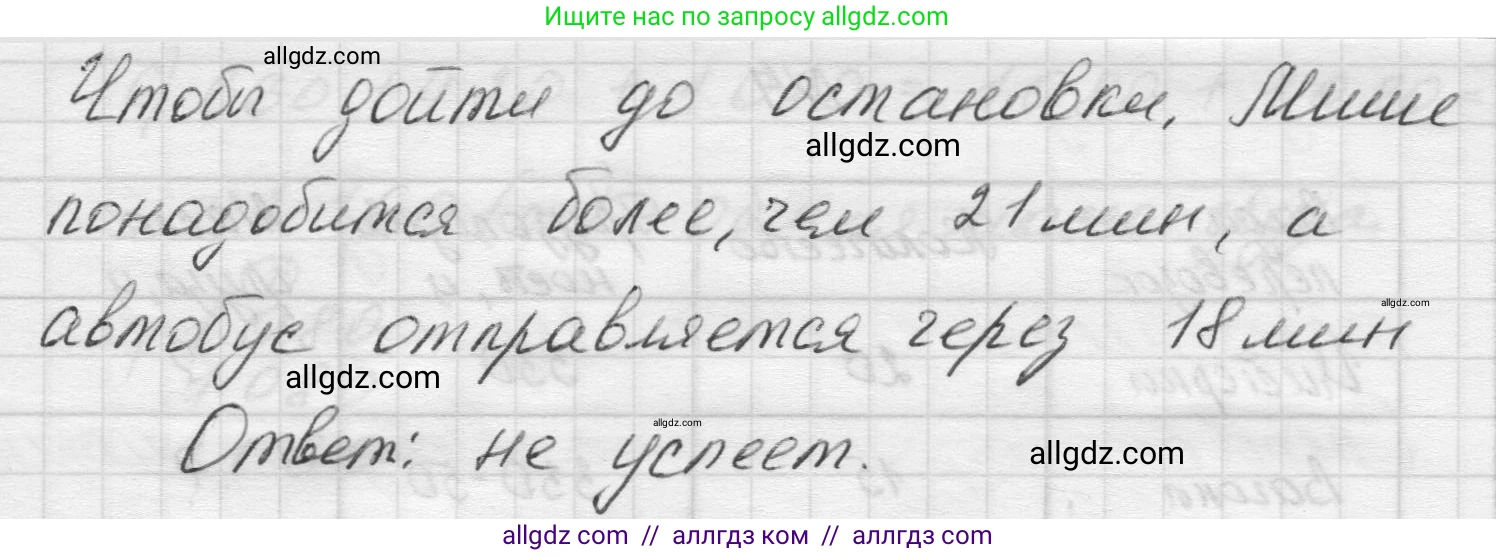 Ищите нас по запросу allgdz.com
allgdz.com
Чтобы дойти до остановки, Мише
allgdz.com
понадобится более, чем 21 мин, а
allgdz.com
автобус отправляется через 18 мин
allgdz.com
allgdz.com
Ответ: не успеет.
allgdz.com
allgdz.com // аллгдз ком // аллгдз.com